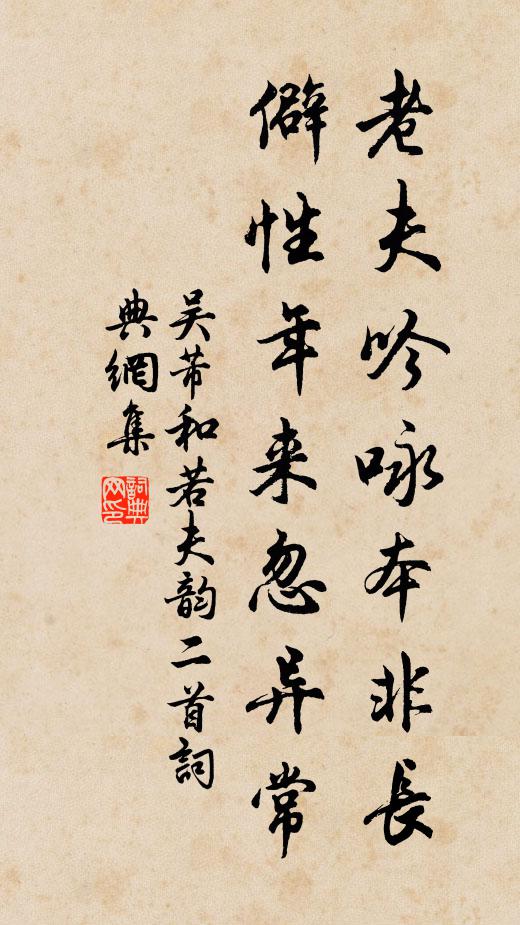 老夫吟咏本非長
僻性年来忽异常
吴芾和若夫韵二首詞
典網集
詞典网印